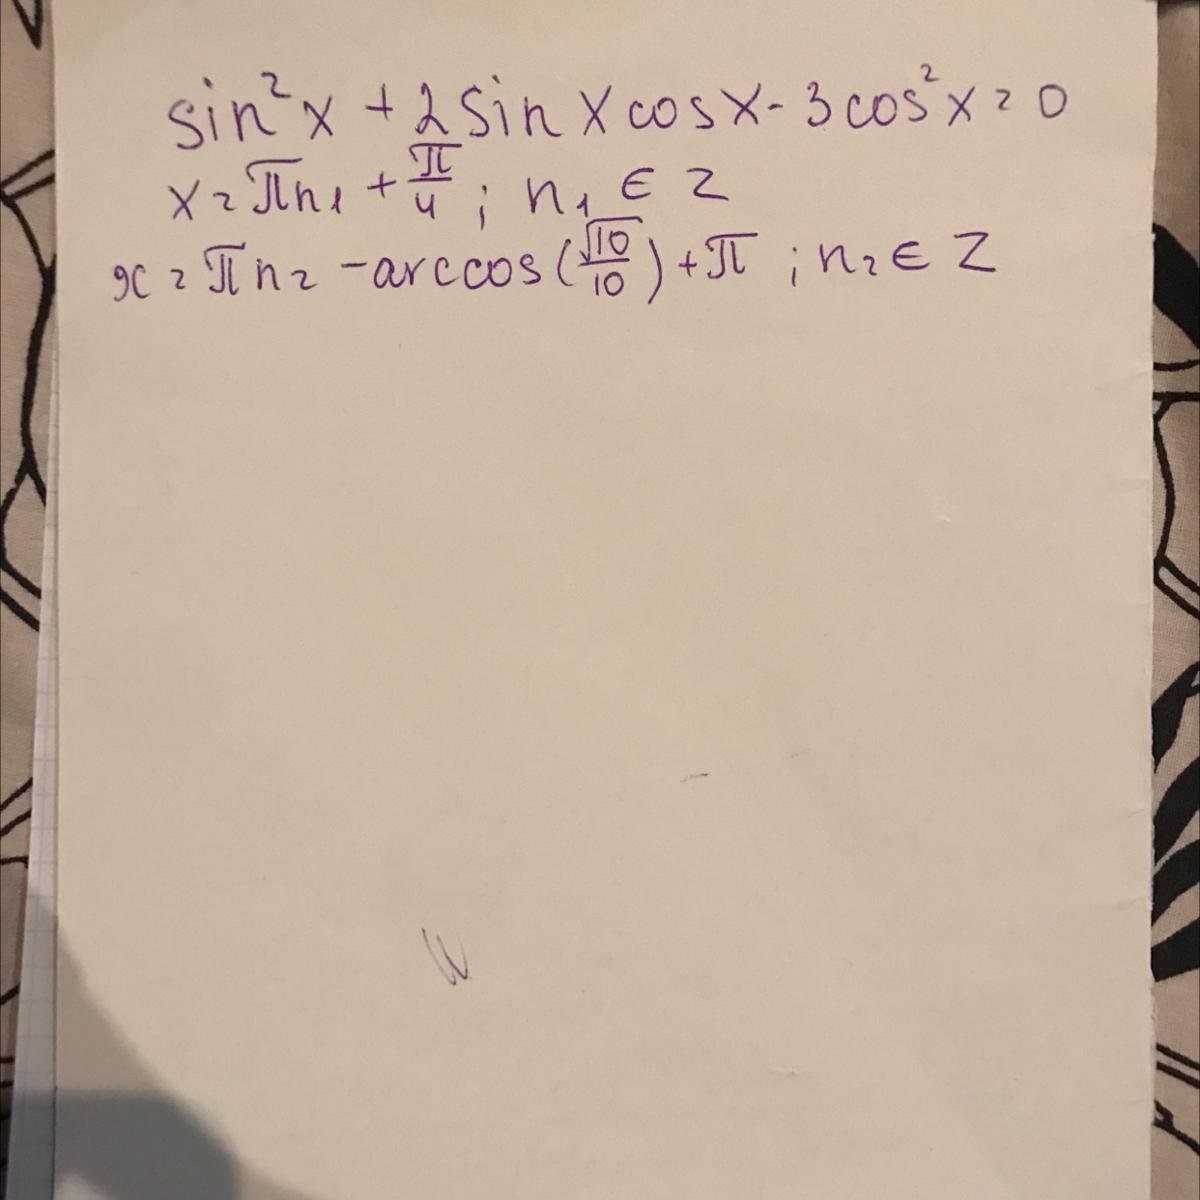 sin²x + 2sin x cos x - 3cos²x = 0
x = πn₁ + π/4 ; n₁ ∈ Z
x = πn₂ - arccos(√10/10) + π ; n₂ ∈ Z